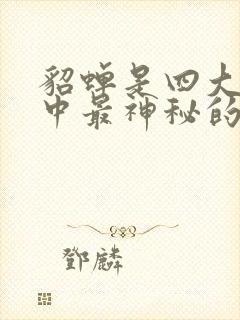 貂蝉是四大
中最神秘的
鄧麟